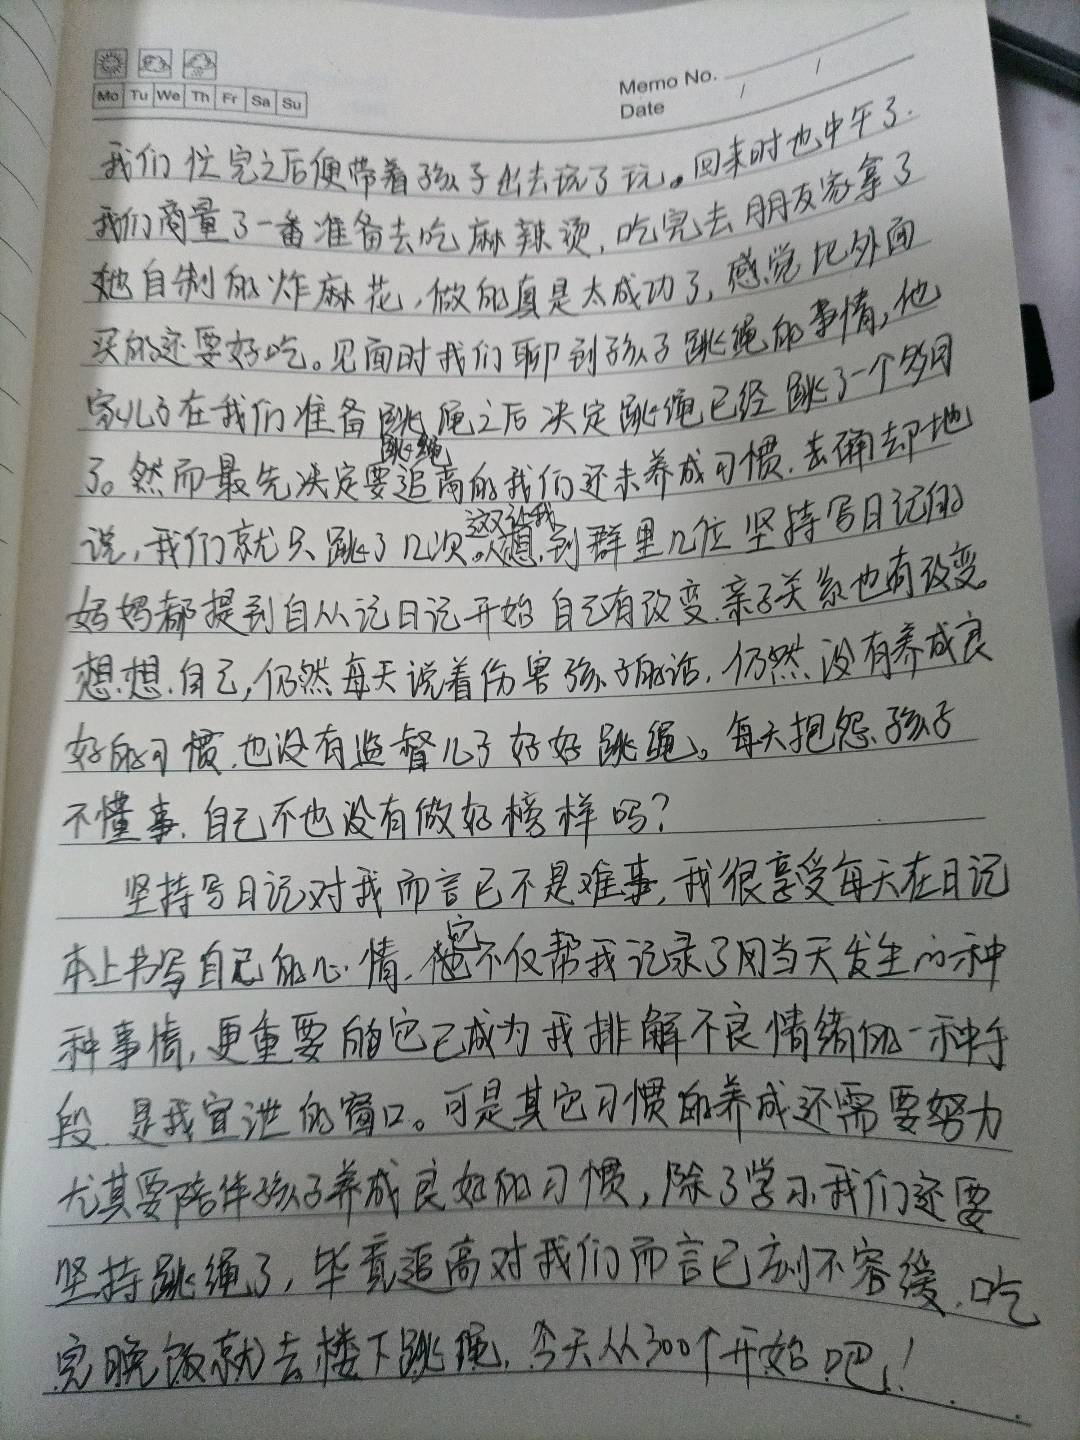 Memo No.
Mo Tu We Th Fr Sa Su
Date / /
我们忙完之后便带着孩子出去玩了玩。回来时也中午了.
我们商量了一番准备去吃麻辣烫,吃完去朋友家拿了
她自制的炸麻花,做的真是太成功了,感觉比外面
买的还要好吃。见面时我们聊到孩子跳绳的事情,他
家儿子在我们准备跳绳之后决定跳绳已经跳了一个多月
了。然而最先决定跳绳要追高的我们还未养成习惯.去确却地
说,我们就只跳了几次。这又让我想到群里几位坚持写日记的
妈妈都提到自从记日记开始自己有改变.亲子关系也有改变。
想想自己,仍然每天说着伤害孩子的话,仍然没有养成良
好的习惯.也没有监督儿子好好跳绳。每天抱怨孩子
不懂事.自己不也没有做好榜样吗?
坚持写日记对我而言已不是难事,我很享受每天在日记
本上书写自己的心情.它不仅帮我记录了当天发生的种
种事情,更重要的它已成为我排解不良情绪的一种手
段.是我宣泄的窗口。可是其它习惯的养成还需要努力
尤其要陪伴孩子养成良好的习惯,除了学习我们还要
坚持跳绳了,毕竟追高对我们而言已刻不容缓.吃
完晚饭就去楼下跳绳,今天从300个开始吧!